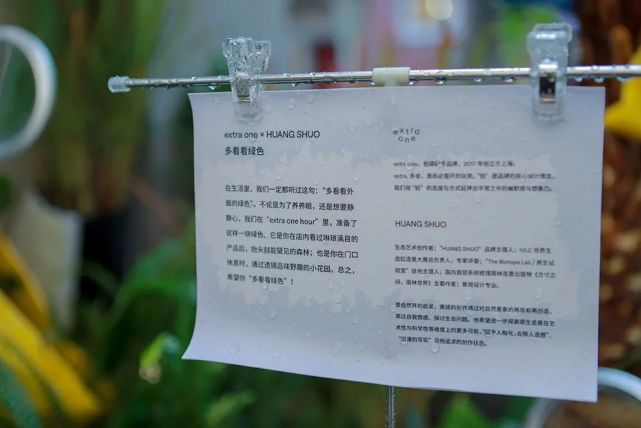 extra one × HUANG SHUO
多看看绿色
在生活里，我们一定都听过这句：“多看看外
面的绿色”。不论是为了养养眼，还是想要静
静心，我们在“extra one hour”里，准备了
这样一块绿色。它是你在店内看过琳琅满目的
产品后，抬头就能望见的森林；也是你在门口
休息时，通过透镜品味野趣的小花园。总之，
希望你“多看看绿色”！
extra
one
extra one，包袋配饰品牌，2017 年创立于上海。
extra, 多余，是和必要相对的玩笑。“轻”是品牌的核心设计理念，
我们用“轻”的态度与方式延伸出平常之中的幽默感与想象力。
HUANG SHUO
生态艺术创作者；“HUANG SHUO”品牌主理人；IVLC 世界生
态缸造景大赛总负责人，专家评委；“The Biotope Lab / 原生试
验室”驻地主理人；国内首部系统梳理雨林造景出版物《方寸之
间，雨林世界》主要作者；景观设计专业。
受自然界的启发，黄硕的创作通过对自然景象的再现和再创造，
表达自我情感、探讨生态问题。他希望进一步探索原生造景在艺
术性与科学性等维度上的更多可能，“赋予人构化，去除人造感”、
“浪漫的写实”是他追求的创作状态。